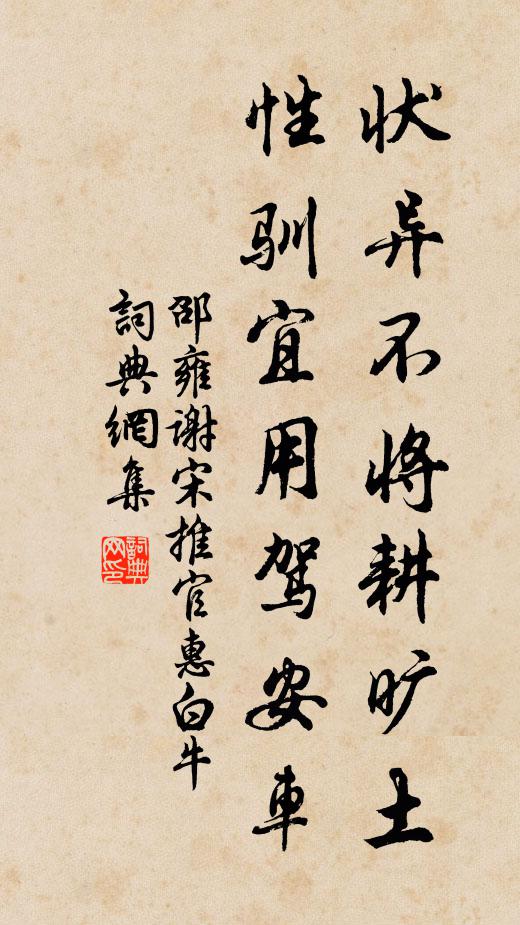 状异不将耕旷土
性驯宜用驾安車
邵雍谢宋推官惠白牛
詞典網集
詞典网印